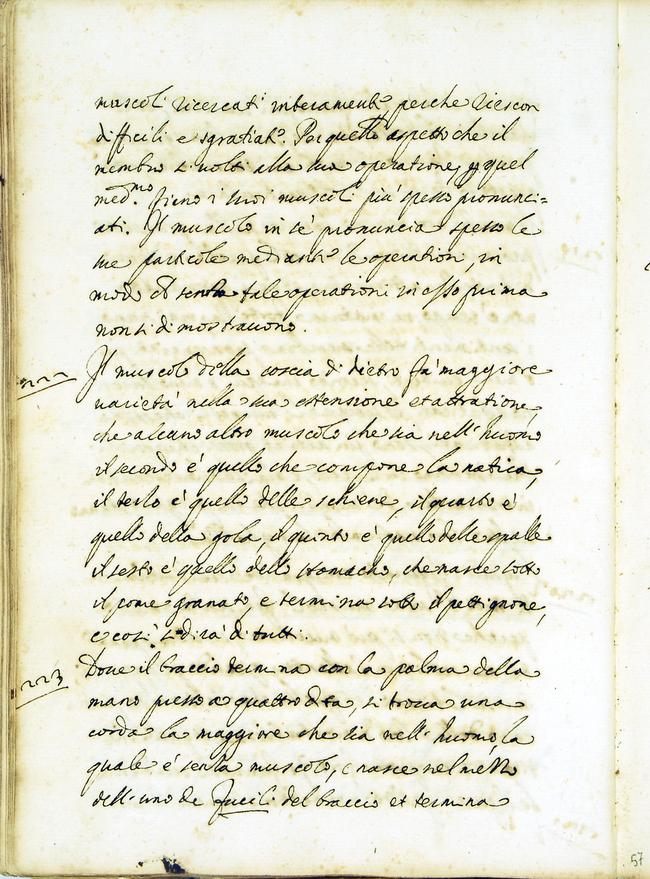 muscoli ricercati interamentᵉ, perche riescon
difficili e sgratiatⁱ. Per quello aspetto che il
membro si volti alla sua operatione, p quel
med.ᵐᵒ sieno i suoi muscoli più spesso pronunci=
ati. Il muscolo in sè pronuncia spesso le
sue particole mediantᵉ le operation, in
modo ch senza tale operationi in esso prima
non si dimostravono.
222 Il muscolo della coscia di dietro fà maggiore
varietà nella sua estensione et attratione,
che alcuno altro muscolo che sia nell'huomo
il secondo è quello che compone la natica,
il terzo è quello delle schiene, il quarto è
quello della gola, il quinto è quello delle spalle
il sesto è quello dello stomacho, che nasce sotto
il pome granato, e termina sotto il pettignone,
e così si dirà di tutti.
223 Dove il braccio termina con la palma della
mano presso a quattro dita, si trova una
corda la maggiore che sia nell'huomo, la
quale è senza muscolo, e nasce nel mezzo
dell'uno de fucili del braccio et termina
57